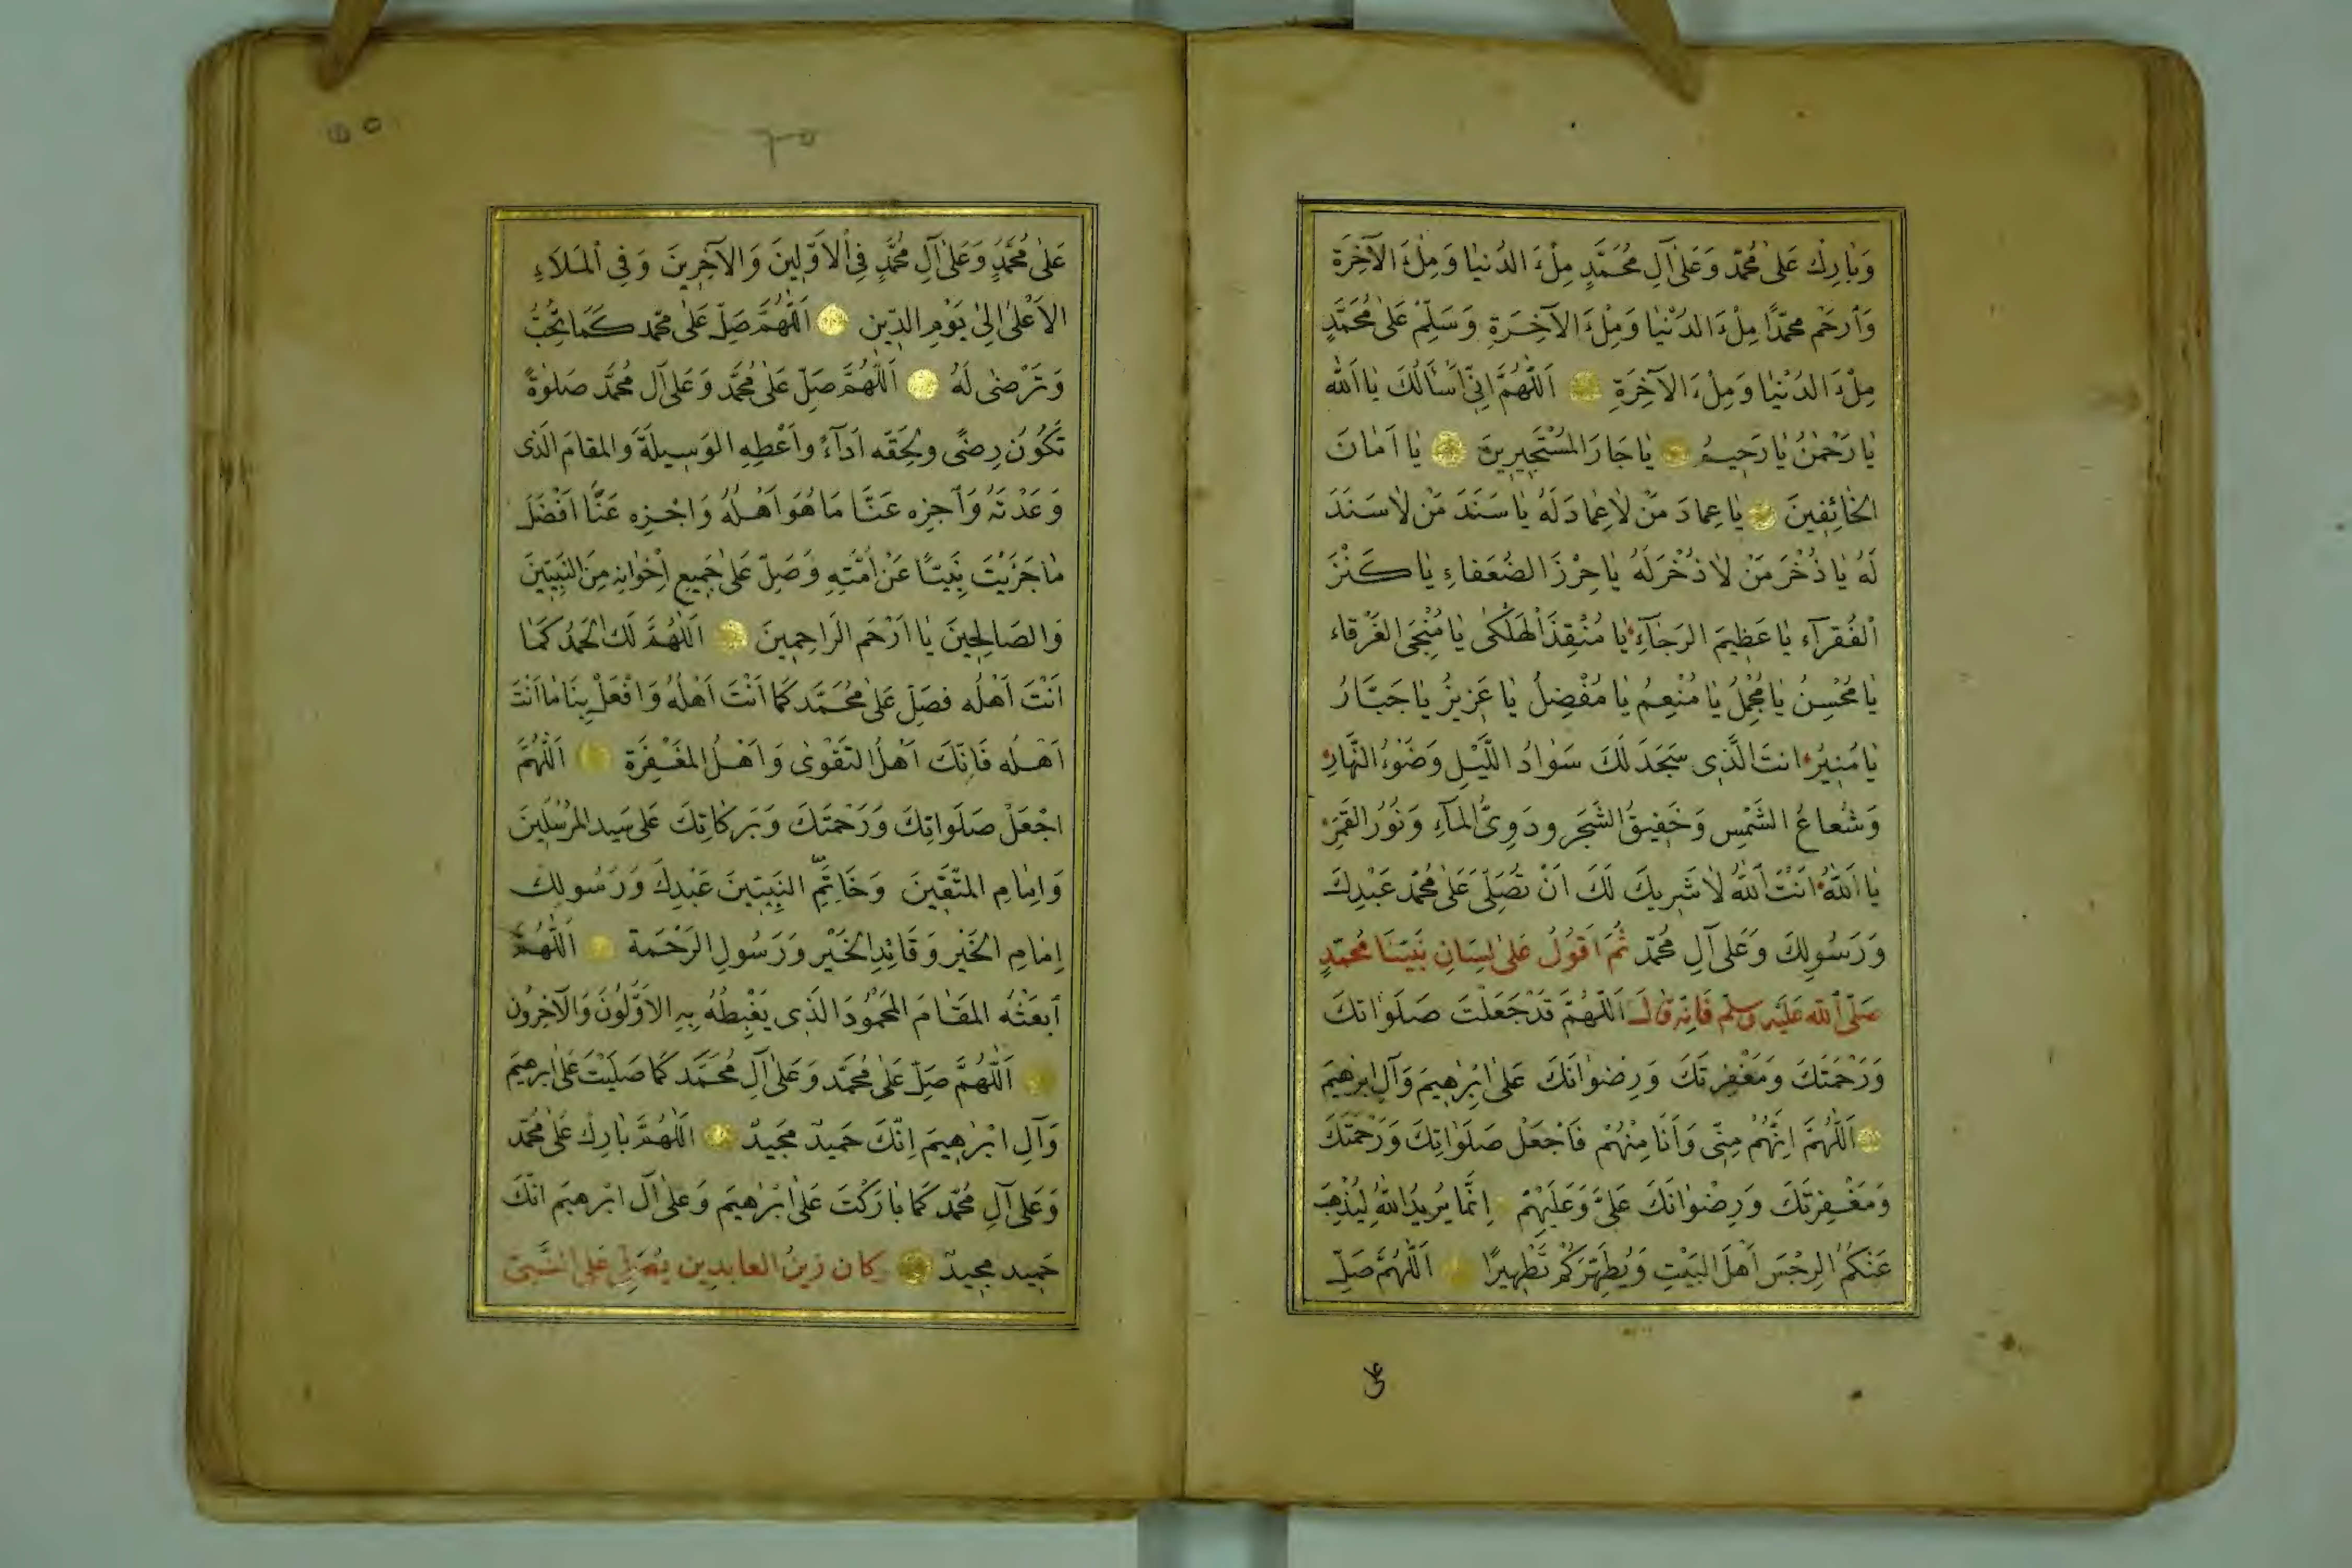 وَبَارِكْ عَلٰى مُحَمَّد وَعَلٰى آلِ مُحَمَّدٍ مِلْءَ الدُنيٰا وَمِلْءَ الآخِرَةِ
وَارْحَمْ محمّدًا مِلْءَ الدُنْيٰا وَمِلْءَ الآخِرَةِ وَسَلِّمْ عَلٰى مُحَمَّدٍ
مِلْءَ الدُنْيٰا وَمِلْءَ الآخِرَةِ اَللّٰهُمَّ اِنِّى اَسْأَلُكَ يٰا اَللّٰه
يٰا رَحْمٰنُ يٰا رَحِيمُ يٰا جَارَ المُسْتَجِيرِينَ يٰا اَمٰانَ
الخٰائِفِينَ يٰا عِمادَ مَنْ لاٰ عِمٰادَ لَهُ يٰا سَنَدَ مَنْ لاٰ سَنَدَ
لَهُ يٰا ذُخْرَ مَنْ لاٰ ذُخْرَ لَهُ يٰا حِرْزَ الضُعَفاءِ يٰا كَنْزَ
الْفُقَرآءِ يٰا عَظِيمَ الرَجٰآءِ يٰا مُنْقِذَ الْهَلْكٰى يٰا مُنْجِىَ الغَرْقاء
يٰا مُحْسِنُ يٰا مُجْمِلُ يٰا مُنْعِمُ يٰا مُفْضِلُ يٰا عَزِيزُ يٰا جَبَّارُ
يٰا مُنِيرُ انتَ الَّذِى سَجَدَ لَكَ سَوٰادُ اللَّيْلِ وَضَوْءُ النَّهَارِ
وَشُعاعُ الشَّمْسِ وَحَفِيقُ الشَجَرِ ودَوِىُّ المآءِ وَنُورُ القَمَرِ
يٰا اَللّٰهُ اَنْتَ اَللّٰهُ لاٰ شَرِيكَ لَكَ اَنْ تُصَلِّىَ عَلٰى مُحَمَّد عَبْدِكَ
وَرَسُولِكَ وَعَلٰى آلِ مُحَمَّد ثُمَّ اَقُولُ عَلٰى لِسَانِ نَبِيّنَا مُحَمَّدٍ
صَلَّى اَللّٰه عَلَيْه وسلّم فَاِنّه قٰالَ اَللّٰهُمَّ قَدْ جَعَلْتَ صَلَوٰاتكَ
وَرَحْمَتَكَ وَمَغْفِرتَكَ وَرِضْوٰانَكَ عَلٰى اِبْرٰهِيمَ وَآلِ اِبْرٰهِيمَ
اَللّٰهُمَّ اِنَّهُمْ مِنِّى وَاَنَا مِنْهُمْ فَاجْعَلْ صَلَوٰاتِكَ وَرَحْمَتَكَ
وَمَغْفِرتَكَ وَرِضْوٰانَكَ عَلَىَّ وَعَلَيْهِمْ اِنَّمَا يُرِيدُ اللّٰهُ لِيُذْهِبَ
عَنْكُمُ الرِجْسَ اَهْلَ البَيْتِ وَيُطَهِّرَكُمْ تَطْهِيرًا اَللّٰهُمَّ صَلِّ
على
عَلٰى مُحَمَّدٍ وَعَلٰى آلِ مُحَمَّدٍ فِى الْاَوَّلِينَ وَالآخِرِينَ وَفِى اْلمَلاَءِ
الاَعْلٰى اِلٰى يَوْمِ الدِّينِ اَللّٰهُمَّ صَلِّ عَلٰى محمّد كَمَا تُحِبُّ
وَتَرْضٰى لَهُ اَللّٰهُمَّ صَلِّ عَلٰى مُحَمَّد وَعَلٰى آل مُحَمَّد صَلٰوةً
تَكُونَ رِضًى ولِحَقِّه اَدآءً واَعْطِهِ الوَسِيلَةَ وَالمقامَ الَذى
وَعَدْتَهُ وَاجْزِه عَنَّا مَا هُوَ اَهْلُهُ وَاجْزِه عَنَّا اَفْضَلَ
مٰا جَزَيْتَ نَبِيّـًا عَنْ اُمَّتِهِ وَصَلِّ عَلٰى جَمِيعِ اِخْوٰانِهِ مِنَ النَّبِيِّينَ
وَالصَالِحِينَ يٰا اَرْحَمَ الرَاحِمِينَ اَللّٰهُمَّ لَكَ الحَمْدُ كَمَا
اَنْتَ اَهْلُه فصَلِّ عَلٰى مُحَمَّد كَمَا اَنْتَ اَهْلُهُ وَافْعَلْ بِنَا مٰا اَنْتَ
اَهْلُه فَاِنَّكَ اَهْلُ التَقْوٰى وَاَهْلُ المَغْفِرَةِ اَللّٰهُمَّ
اجْعَلْ صَلَوٰاتِكَ وَرَحْمَتَكَ وَبَرَكاتِكَ عَلٰى سَيدِ المُرْسَلِينَ
وَاِمٰامِ المتَّقِينَ وَخَاتِمَ النَبِيّينَ عَبْدِكَ وَرَسُولِكَ
اِمٰامِ الخَيْرِ وَقَائِدِ الخَيْرِ وَرَسُولِ الرَحْمَة اَللّٰهُمَّ
ابعَثْهُ المَقٰامَ المَحْمُودَ الَذِى يَغْبِطُهُ بِهِ الاَوَّلُونَ وَالآخِرُونَ
اَللّٰهُمَّ صَلِّ عَلٰى مُحَمَّد وَعَلٰى آلِ مُحَمَّد كَمَا صَلَيْتَ عَلٰى ابرهيمَ
وَآلِ ابْرٰهِيمَ اِنَّكَ حَمِيدٌ مَجِيدٌ اَللّٰهُمَّ بٰارِكْ عَلٰى مُحَمّد
وَعَلٰى آلِ مُحَمّد كَمَا بٰارَكْتَ عَلٰى ابْرٰهيمَ وَعَلٰى آلِ ابْرهيمَ انّكَ
حَمِيد مجِيدٌ وكان زينُ العابدين يُصَلِّى عَلى النَّبىّ